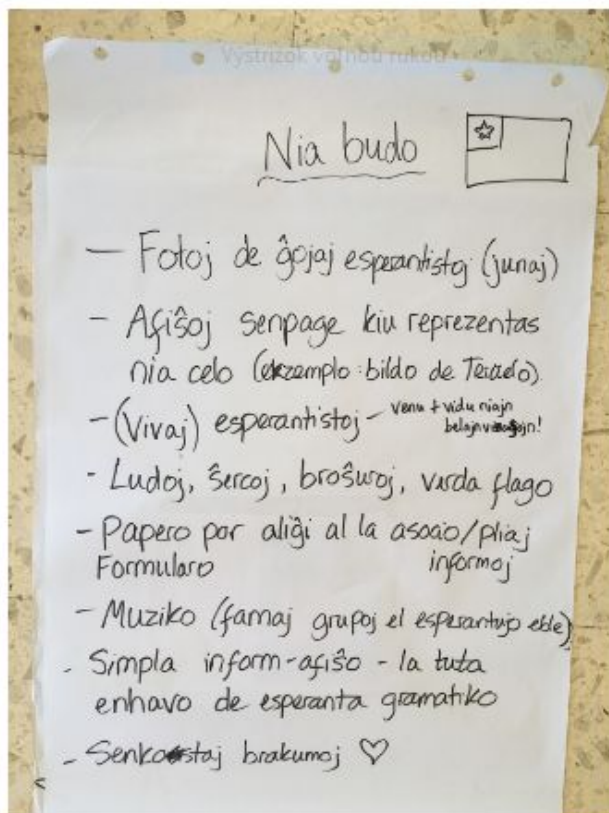 Vystrižok voľnou rukou
Nia budo
— Fotoj de ĝojaj esperantistoj (junaj)
- Afiŝoj senpage kiu reprezentas
nia celo (ekzemplo: bildo de
- (Vivaj) esperantistoj - venu + vidu niajn
belajn
- Ludoj, ŝercoj, broŝuroj, verda flago
- Papero por aliĝi al la asocio/pliaj
Formularo informoj
- Muziko (famaj grupoj el esperantujo eble)
- Simpla inform-afiŝo - la tuta
enhavo de esperanta gramatiko
- Senkostaj brakumoj ♡